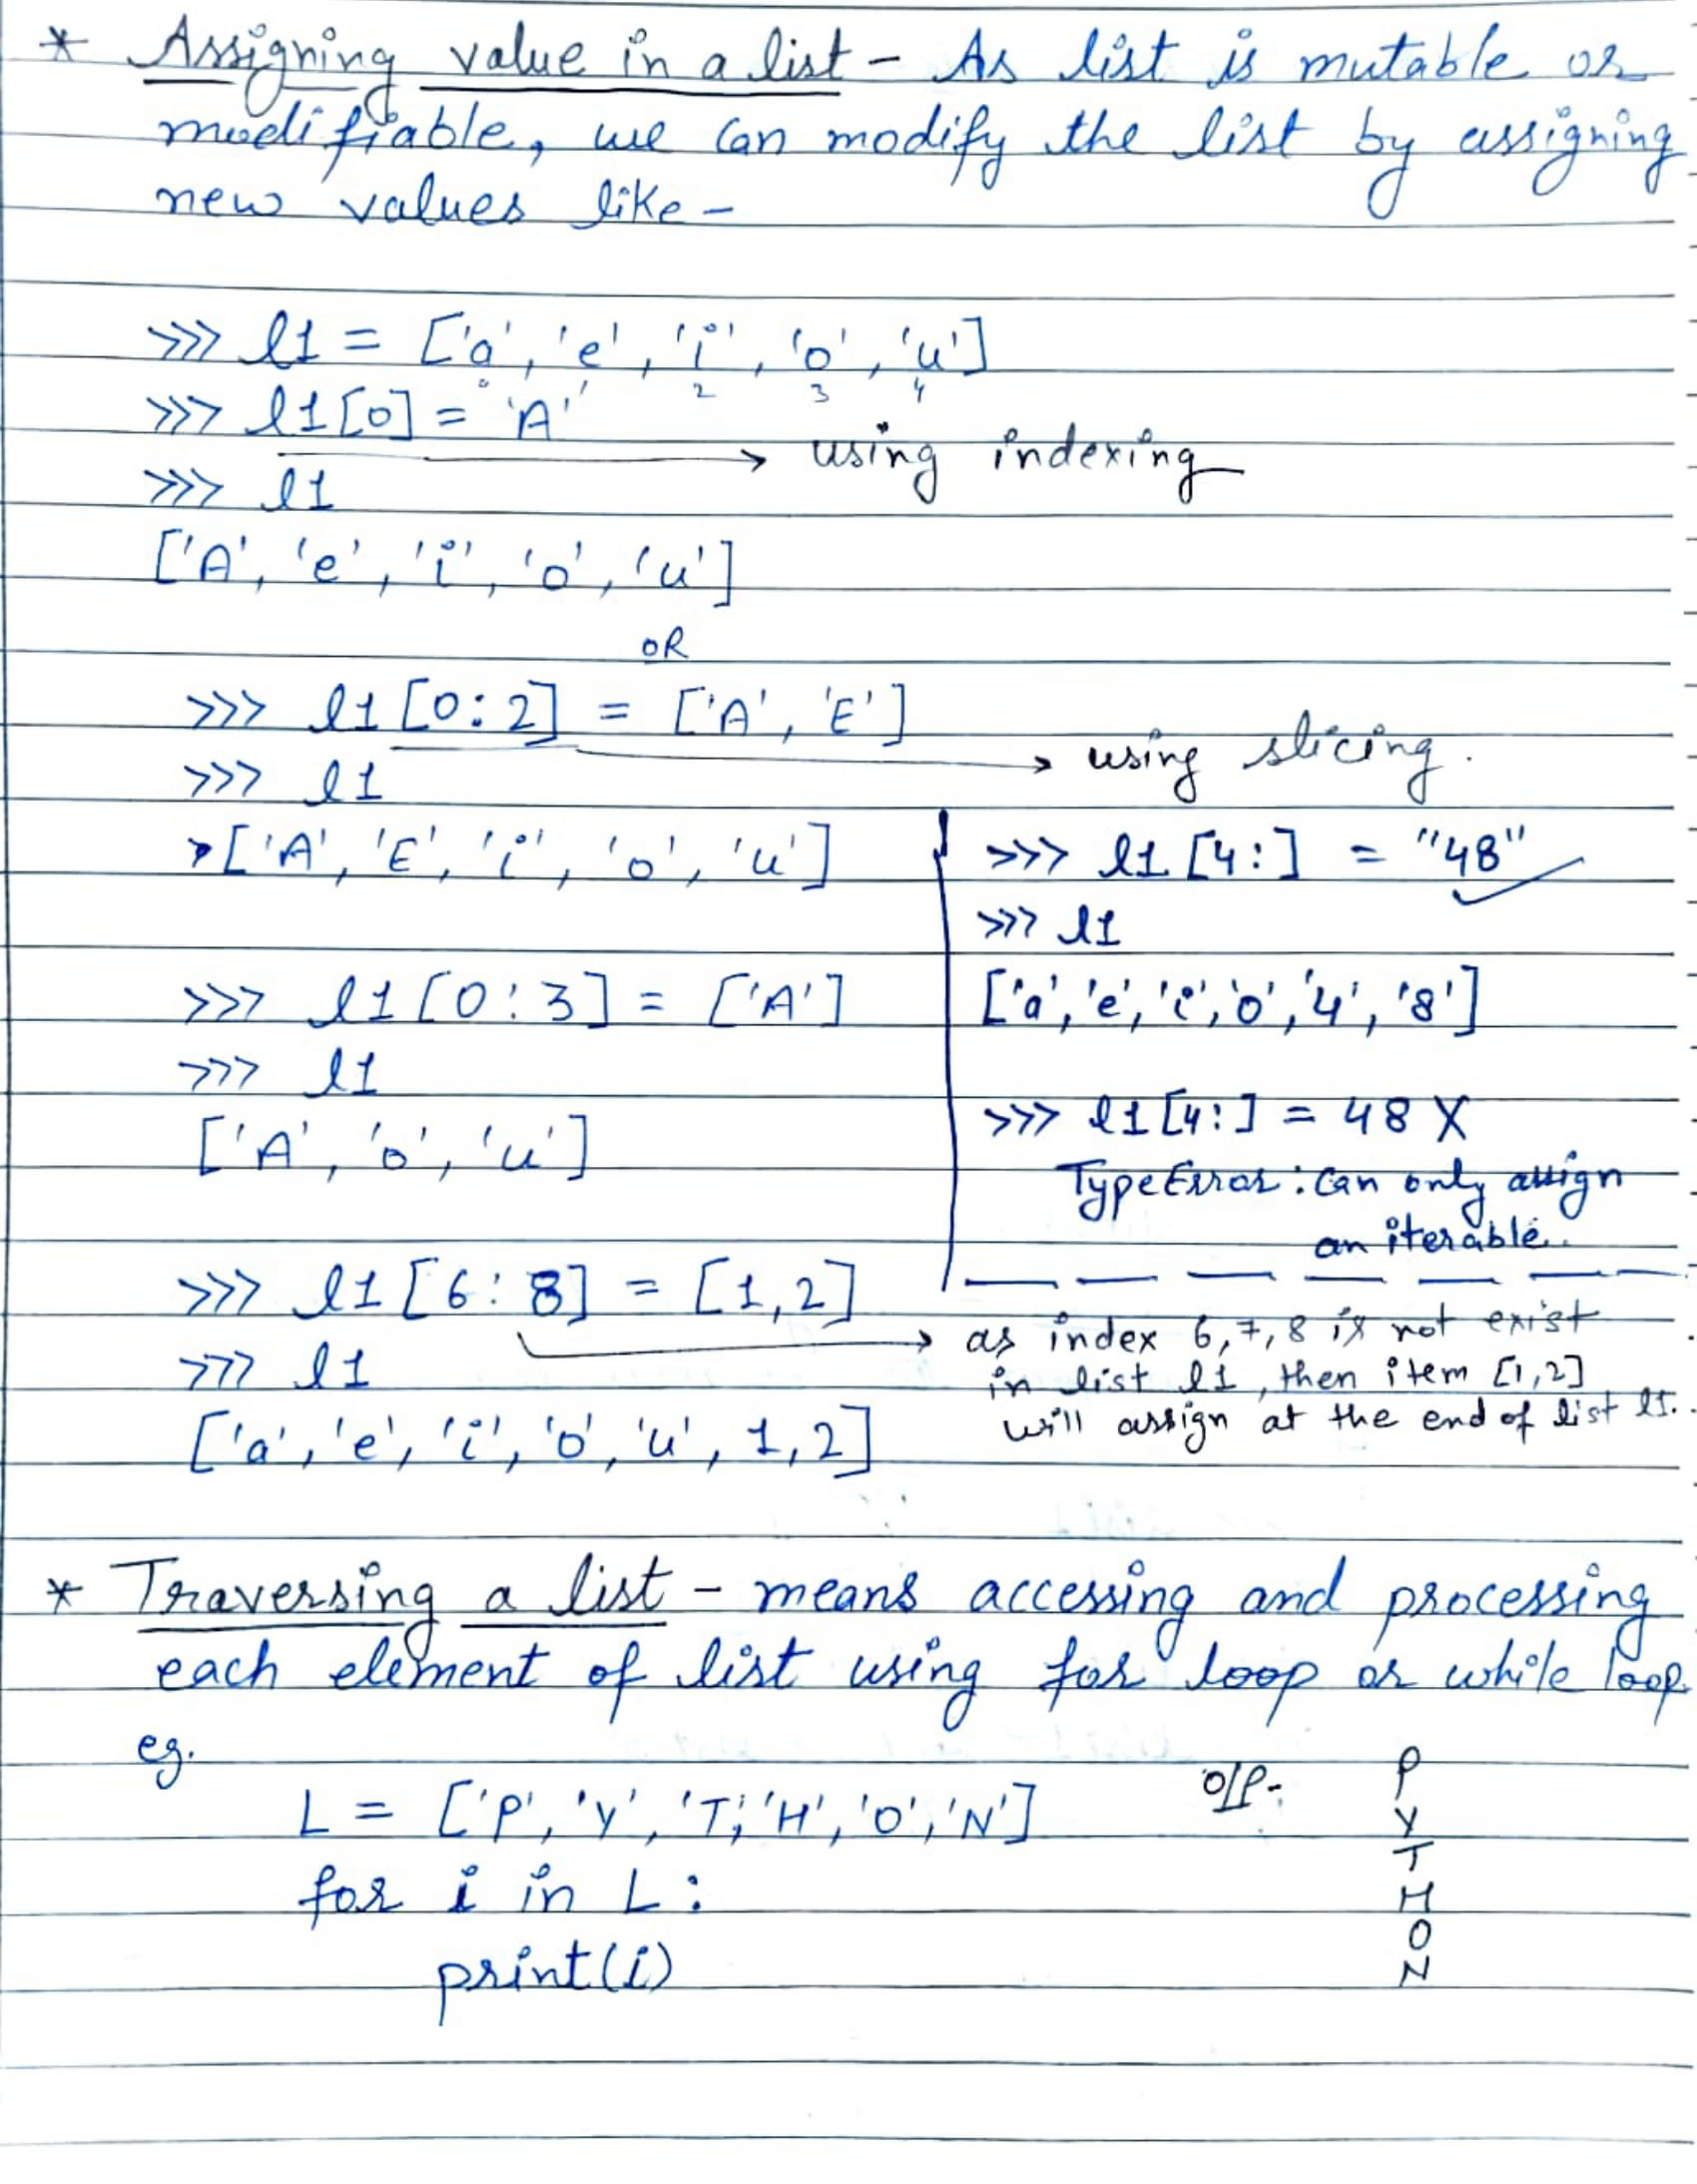 * Assigning value in a list - As list is mutable or
modifiable, we can modify the list by assigning
new values like -
>>> l1 = ['a', 'e', 'i', 'o', 'u']
0 1 2 3 4
>>> l1[0] = 'A'
→ using indexing
>>> l1
['A', 'e', 'i', 'o', 'u']
OR
>>> l1[0:2] = ['A', 'E']
→ using slicing.
>>> l1
>['A', 'E', 'i', 'o', 'u']
>>> l1[0:3] = ['A']
>>> l1
['A', 'o', 'u']
>>> l1[4:] = "48"
>>> l1
['a', 'e', 'i', 'o', '4', '8']
>>> l1[4:] = 48 X
TypeError: Can only assign
an iterable.
>>> l1[6:8] = [1,2]
>>> l1
['a', 'e', 'i', 'o', 'u', 1,2]
→ as index 6,7,8 is not exist
in list l1, then item [1,2]
will assign at the end of list l1.
* Traversing a list - means accessing and processing
each element of list using for loop or while loop.
eg.
L = ['P', 'Y', 'T', 'H', 'O', 'N']
for i in L:
print(i)
O/P-:
P
Y
T
H
O
N